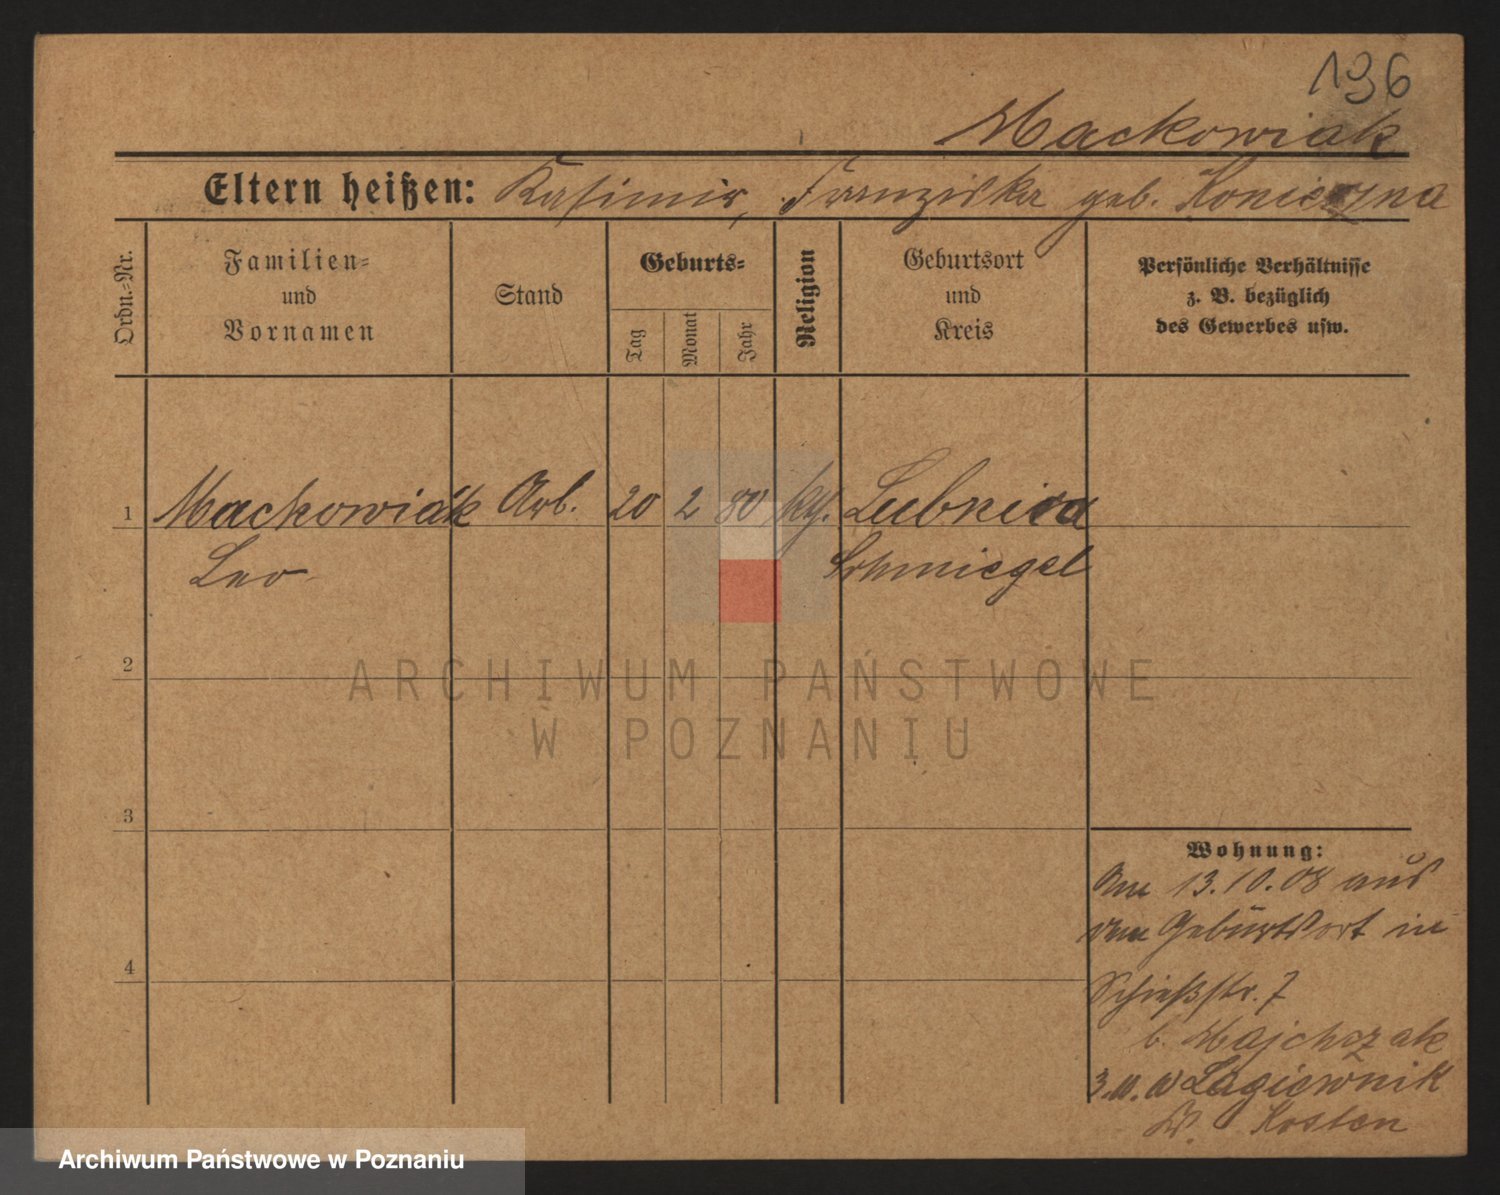 196
Mackowiak
Eltern heißen: Kasimir, Franziska geb. Konieczna
Ordn.-Nr.
Familien-
und
Vornamen
Stand
Geburts-
Tag
Monat
Jahr
Religion
Geburtsort
und
Kreis
Persönliche Verhältnisse
z. B. bezüglich
des Gewerbes usw.
1 Mackowiak Arb. 20 2 80 kth. Lubnica
Leo Schmiegel
2
ARCHIWUM PAŃSTWOWE
W POZNANIU
3
Wohnung:
Am 13.10.08 aus
dem Geburtsort in
4
Schießstr. 7
b. Majchrzak
Lagiewnik
Kosten
Archiwum Państwowe w Poznaniu